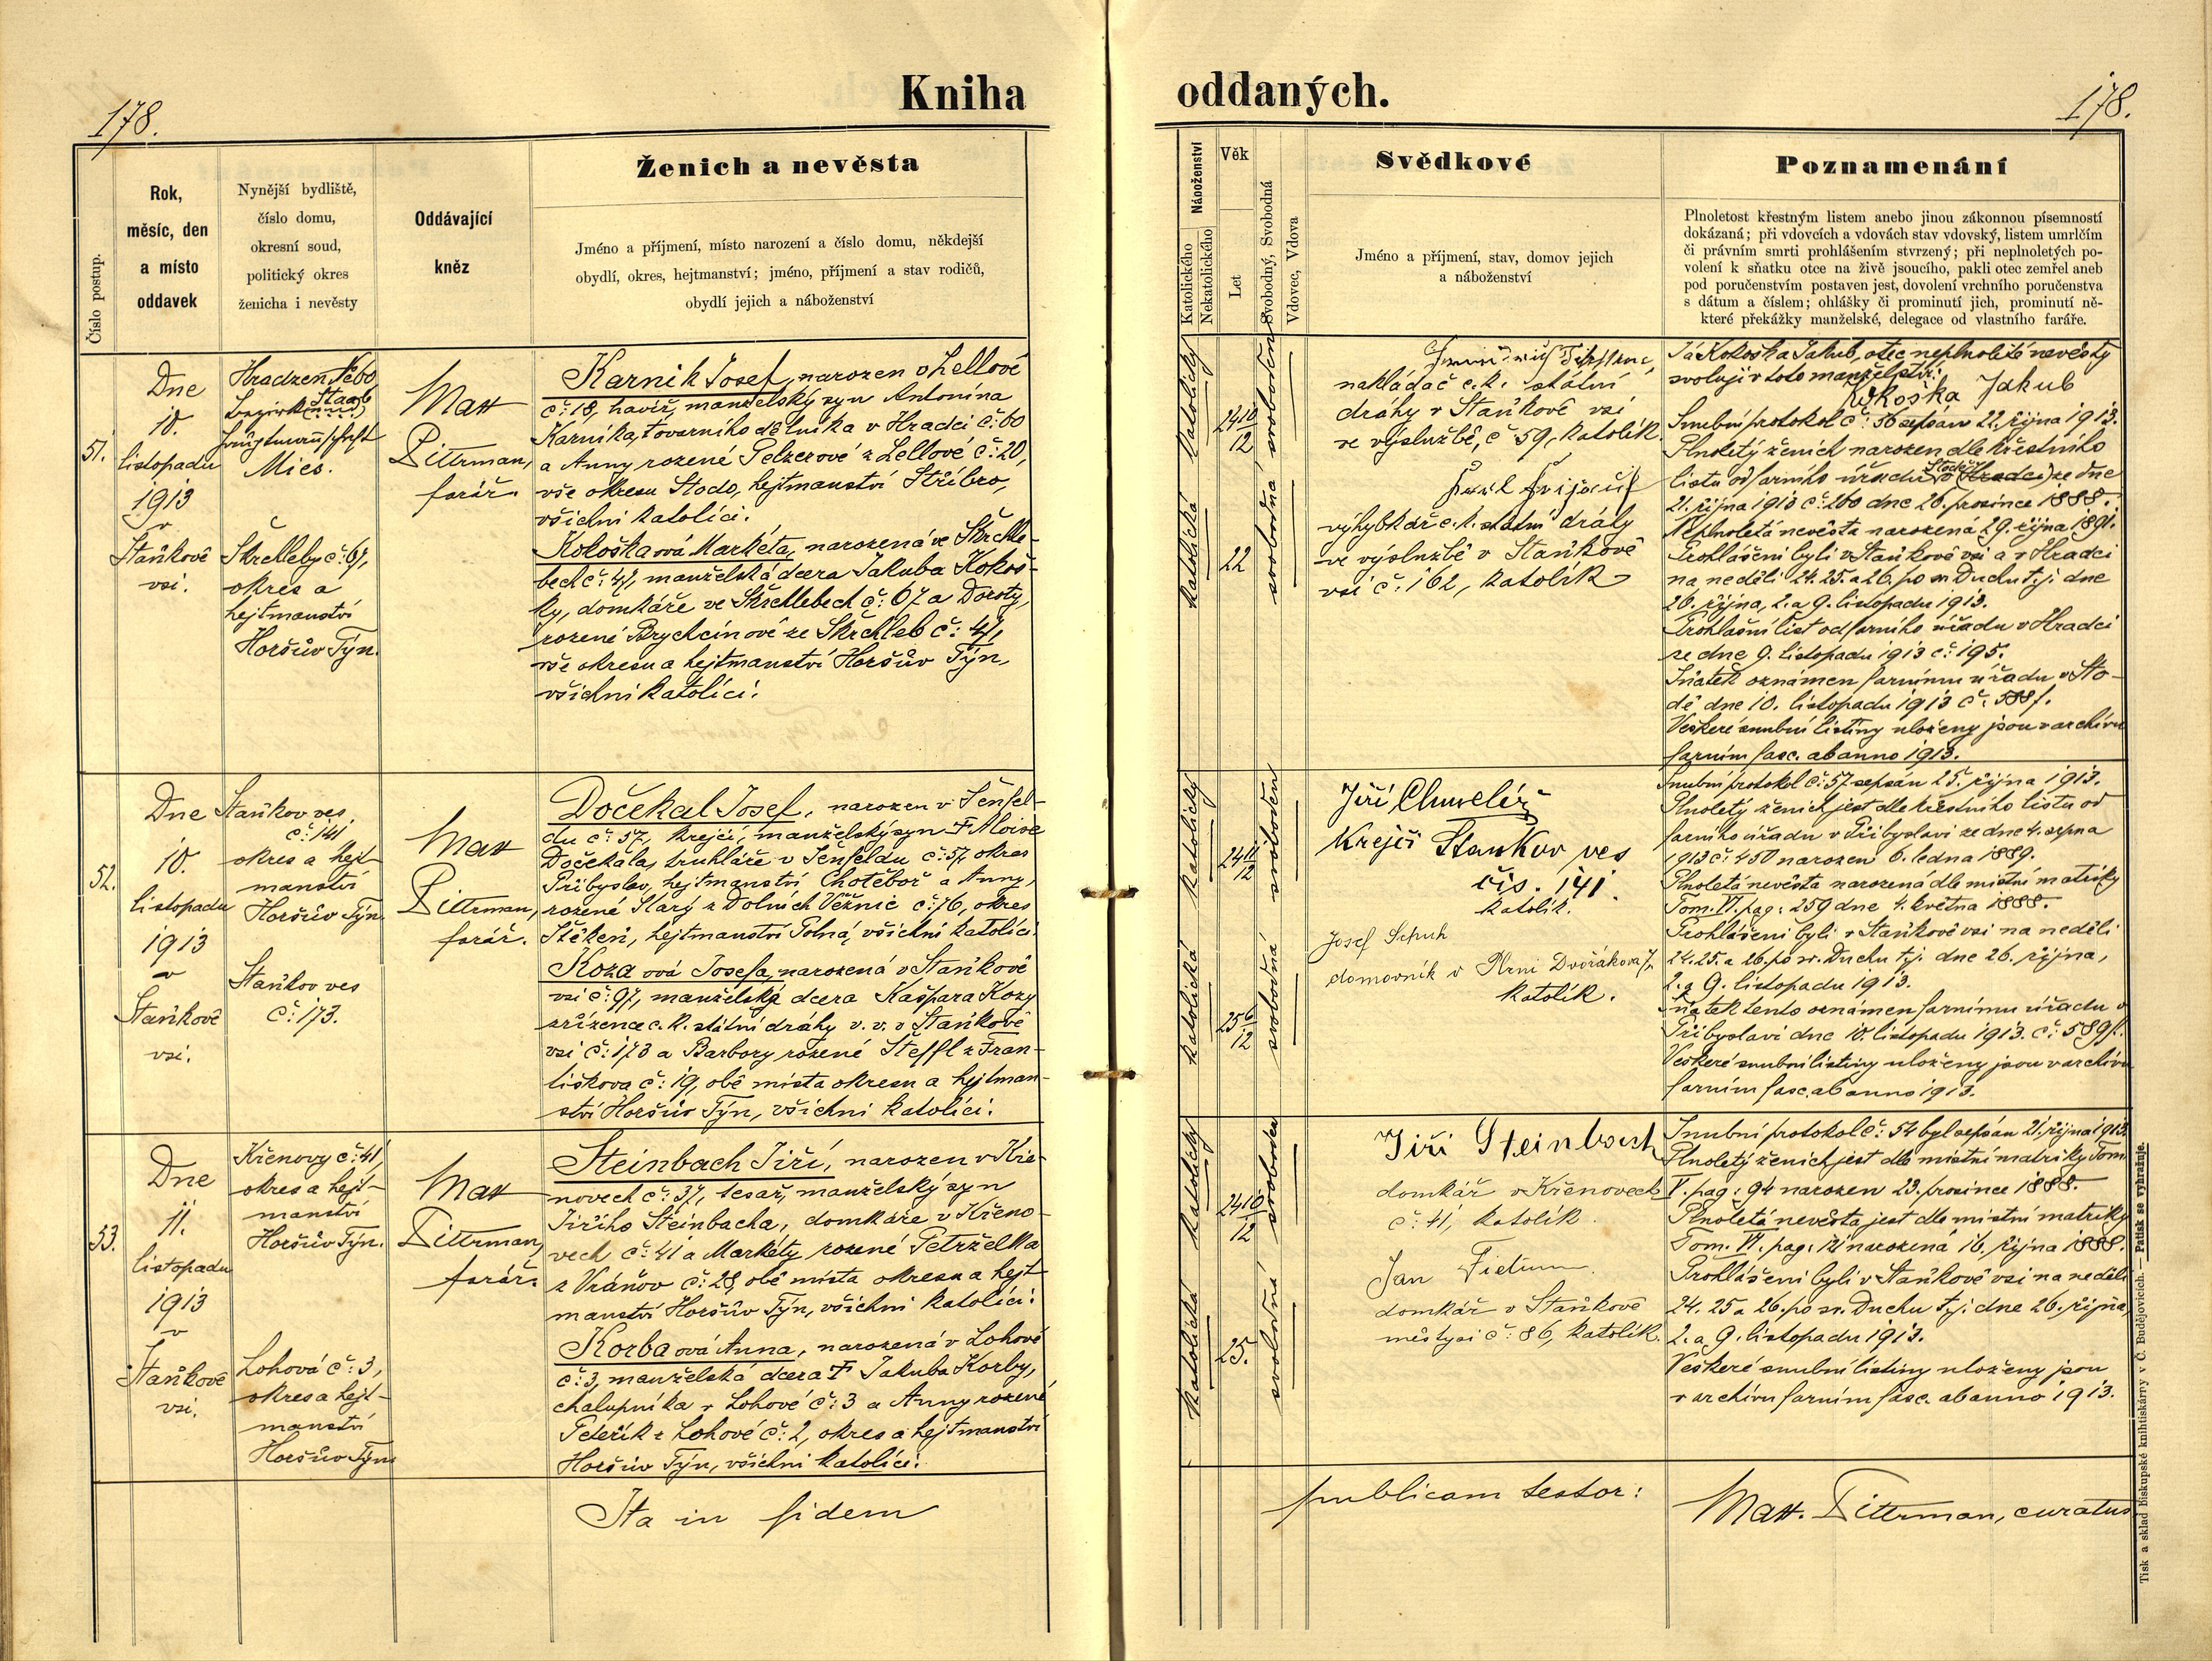 Kniha
oddaných.
178.
178.
Číslo postup.
Rok,
měsíc, den
a místo
oddavek
Nynější bydliště,
číslo domu,
okresní soud,
politický okres
ženicha i nevěsty
Oddávající
kněz
Ženich a nevěsta
Jméno a příjmení, místo narození a číslo domu, někdejší
obydlí, okres, hejtmanství; jméno, příjmení a stav rodičů,
obydlí jejich a náboženství
Náboženství
Katolického
Nekatolického
Věk
Let
Svobodný, Svobodná
Vdovec, Vdova
Svědkové
Jméno a příjmení, stav, domov jejich
a náboženství
Poznamenání
Plnoletost křestným listem anebo jinou zákonnou písemností
dokázaná; při vdovcích a vdovách stav vdovský, listem umrlčím
či právním smrti prohlášením stvrzený; při neplnoletých po-
volení k sňatku otce na živě jsoucího, pakli otec zemřel aneb
pod poručenstvím postaven jest, dovolení vrchního poručenstva
s dátum a číslem; ohlášky či prominutí jich, prominutí ně-
které překážky manželské, delegace od vlastního faráře.
51.
Dne
10.
listopadu
1913
v
Staňkově
vsi.
Hradzen
Staab
Mies.
Skrchleby č: 67,
okres a
hejtmanství
Horšův Týn.
Mat
Pittrman,
farář.
Karnik Josef, narozen v Lellové
č: 18, havíř, manželský syn Antonína
Karníka, továrního dělníka v Hradci č: 60
a Anny rozené Pelzerové z Lellové č: 20,
vše okresu Stodo, hejtmanství Stříbro,
všichni katolíci.
Kokoška ová Markéta, narozená ve Skrchle-
bech č: 47, manželská dcera Jakuba Kokoš-
ky, domkáře ve Skrchlebech č: 67 a Doroty,
rozené Brychcínové ze Skrchleb č: 47,
vše okresu a hejtmanství Horšův Týn,
všichni katolíci.
katolický
24 10/12
svoboden
katolická
22
svobodná
nakládač c. k. státní
dráhy v Staňkově vsi
ve výslužbě, č 59, katolík.
výhybkář c. k. státní dráhy
ve výslužbě v Staňkově
vsi č: 162, katolík
Já Kokoška Jakub, otec neplnoleté nevěsty
svoluji v toto manželství:
Kokoška Jakub
Snubní protokol č: 56 sepsán 22. října 1913.
Plnoletý ženich narozen dle křestního
listu od farního úřadu v (Hradci) ze dne
21. října 1913 č: 260 dne 26. prosince 1888.
Neplnoletá nevěsta narozená 29. října 1891.
Prohlášeni byli v Staňkově vsi a v Hradci
na neděli 24. 25. a 26. po sv. Duchu t. j. dne
26. října, 2. a 9. listopadu 1913.
Prohlašní list od farního úřadu v Hradci
ze dne 9. listopadu 1913 č: 195.
Sňatek oznámen farnímu úřadu v Sto-
dě dne 10. listopadu 1913 č: 588f.
Veškeré snubní listiny uloženy jsou v archivu
farním fasc. ab anno 1913.
52.
Dne
10.
listopadu
1913
v
Staňkově
vsi.
Staňkov ves
č: 141
okres a hejt-
manství
Horšův Týn.
Staňkov ves
č: 173.
Mat
Pittrman,
farář.
Dočekal Josef, narozen v Šenfel-
du č: 57, krejčí, manželský syn † Aloise
Dočekala, truhláře v Šenfeldu č: 57, okres
Přibyslav, hejtmanství Chotěboř a Anny,
rozené Starý z Dolních Věžnic č: 76, okres
Štěkeň, hejtmanství Polná, všichni katolíci.
Koza ová Josefa, narozená v Staňkově
vsi č: 97, manželská dcera Kašpara Kozy
zřízence c. k. státní dráhy v. v. v Staňkově
vsi č: 173 a Barbory rozené Steffl z Fran-
tiškova č: 19, obě místa okresu a hejtman-
ství Horšův Týn, všichni katolíci.
katolický
24 11/12
svoboden
katolická
25 6/12
svobodná
Jiří Chmelíř
Krejčí Staňkov ves
čís. 141.
katolík.
Josef Schuh
domovník v Plzni Dvořákova 7,
katolík.
Snubní protokol č: 57 sepsán 25. října 1913.
Plnoletý ženich jest dle křestního listu od
farního úřadu v Přibyslavi ze dne 4. srpna
1913 č: 450 narozen 6. ledna 1889.
Plnoletá nevěsta narozená dle místní matriky
Tom. VI. pag: 259 dne 4. května 1888.
Prohlášeni byli v Staňkově vsi na neděli
24. 25. a 26. po sv. Duchu t. j. dne 26. října,
2. a 9. listopadu 1913.
Sňatek tento oznámen farnímu úřadu v
Přibyslavi dne 10. listopadu 1913. č: 589f.
Veškeré snubní listiny uloženy jsou v archivu
farním fasc. ab anno 1913.
53.
Dne
11.
listopadu
1913
v
Staňkově
vsi.
Křenovy č: 41,
okres a hejt-
manství
Horšův Týn.
Lohová č: 3,
okres a hejt-
manství
Horšův Týn
Mat
Pittrman,
farář.
Steinbach Jiří, narozen v Kře-
novech č: 37, tesař, manželský syn
Jiřího Steinbacha, domkáře v Křeno-
vech č: 41 a Markéty rozené Petrželka
z Vránov č: 28, obě místa okresu a hejt
manství Horšův Týn, všichni katolíci.
Korba ová Anna, narozená v Lohové
č: 3, manželská dcera † Jakuba Korby,
chalupníka v Lohové č: 3 a Anny rozené
Peteřík z Lohové č: 2, okres a hejtmanství
Horšův Týn, všichni katolíci.
katolický
24 10/12
svoboden
katolická
25.
svobodná
Jiří Steinbach
domkář v Křenovech
č: 41, katolík.
Jan
domkář v Staňkově
městysi č: 86, katolík.
Snubní protokol č: 54 byl sepsán 21. října 1913.
Plnoletý ženich jest dle místní matriky Tom.
V. pag: 94 narozen 23. prosince 1888.
Plnoletá nevěsta jest dle místní matriky
Tom. VI. pag: 121 narozená 16. října 1888.
Prohlášeni byli v Staňkově vsi na neděli
24. 25 a 26. po sv. Duchu t. j. dne 26. října,
2. a 9. listopadu 1913.
Veškeré snubní listiny uloženy jsou
v archivu farním fasc. ab anno 1913.
Ita in fidem
publicam testor:
Matt. Pittrman, curatus
Tisk a sklad biskupské knihtiskárny v Č. Budějovicích. — Patisk se vyhražuje.